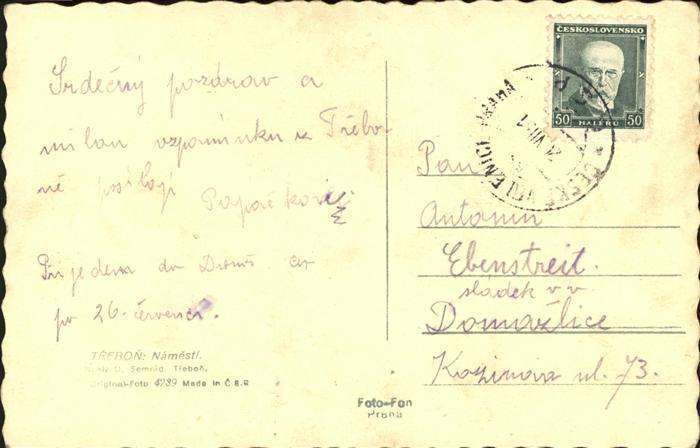 Srdečný pozdrav a
milou vzpomínku z Třebo-
ně posílají
Přijedeme do
po 26. červenci.
TŘEBOŇ: Náměstí.
Třeboň.
Original-Foto 4239 Made in Č.S.R
Foto-Fon
Praha
ČESKOSLOVENSKO
50 HALÉŘŮ 50
PRAHA
21.VII
Pan
Antonín
Ebenstreit.
sládek v.v.
Domažlice
Kozinova ul. 73.